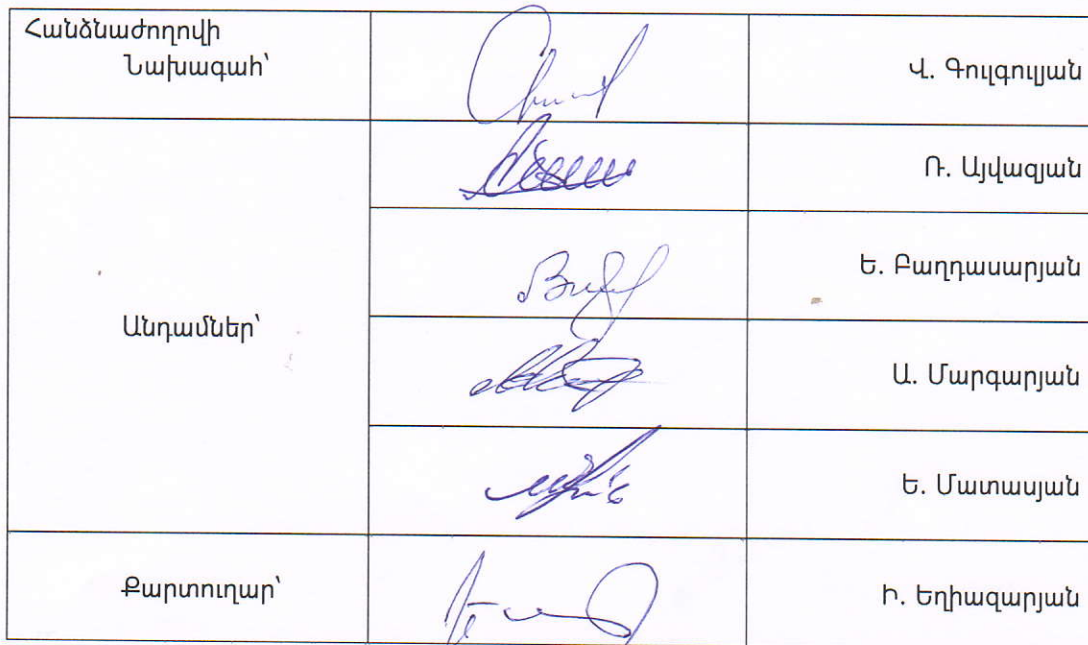 Հանձնաժողովի
Նախագահ՝
Վ. Գուլգուլյան
Ռ. Այվազյան
Ե. Բաղդասարյան
Անդամներ՝
Ա. Մարգարյան
Ե. Մատասյան
Քարտուղար՝
Ի. Եղիազարյան